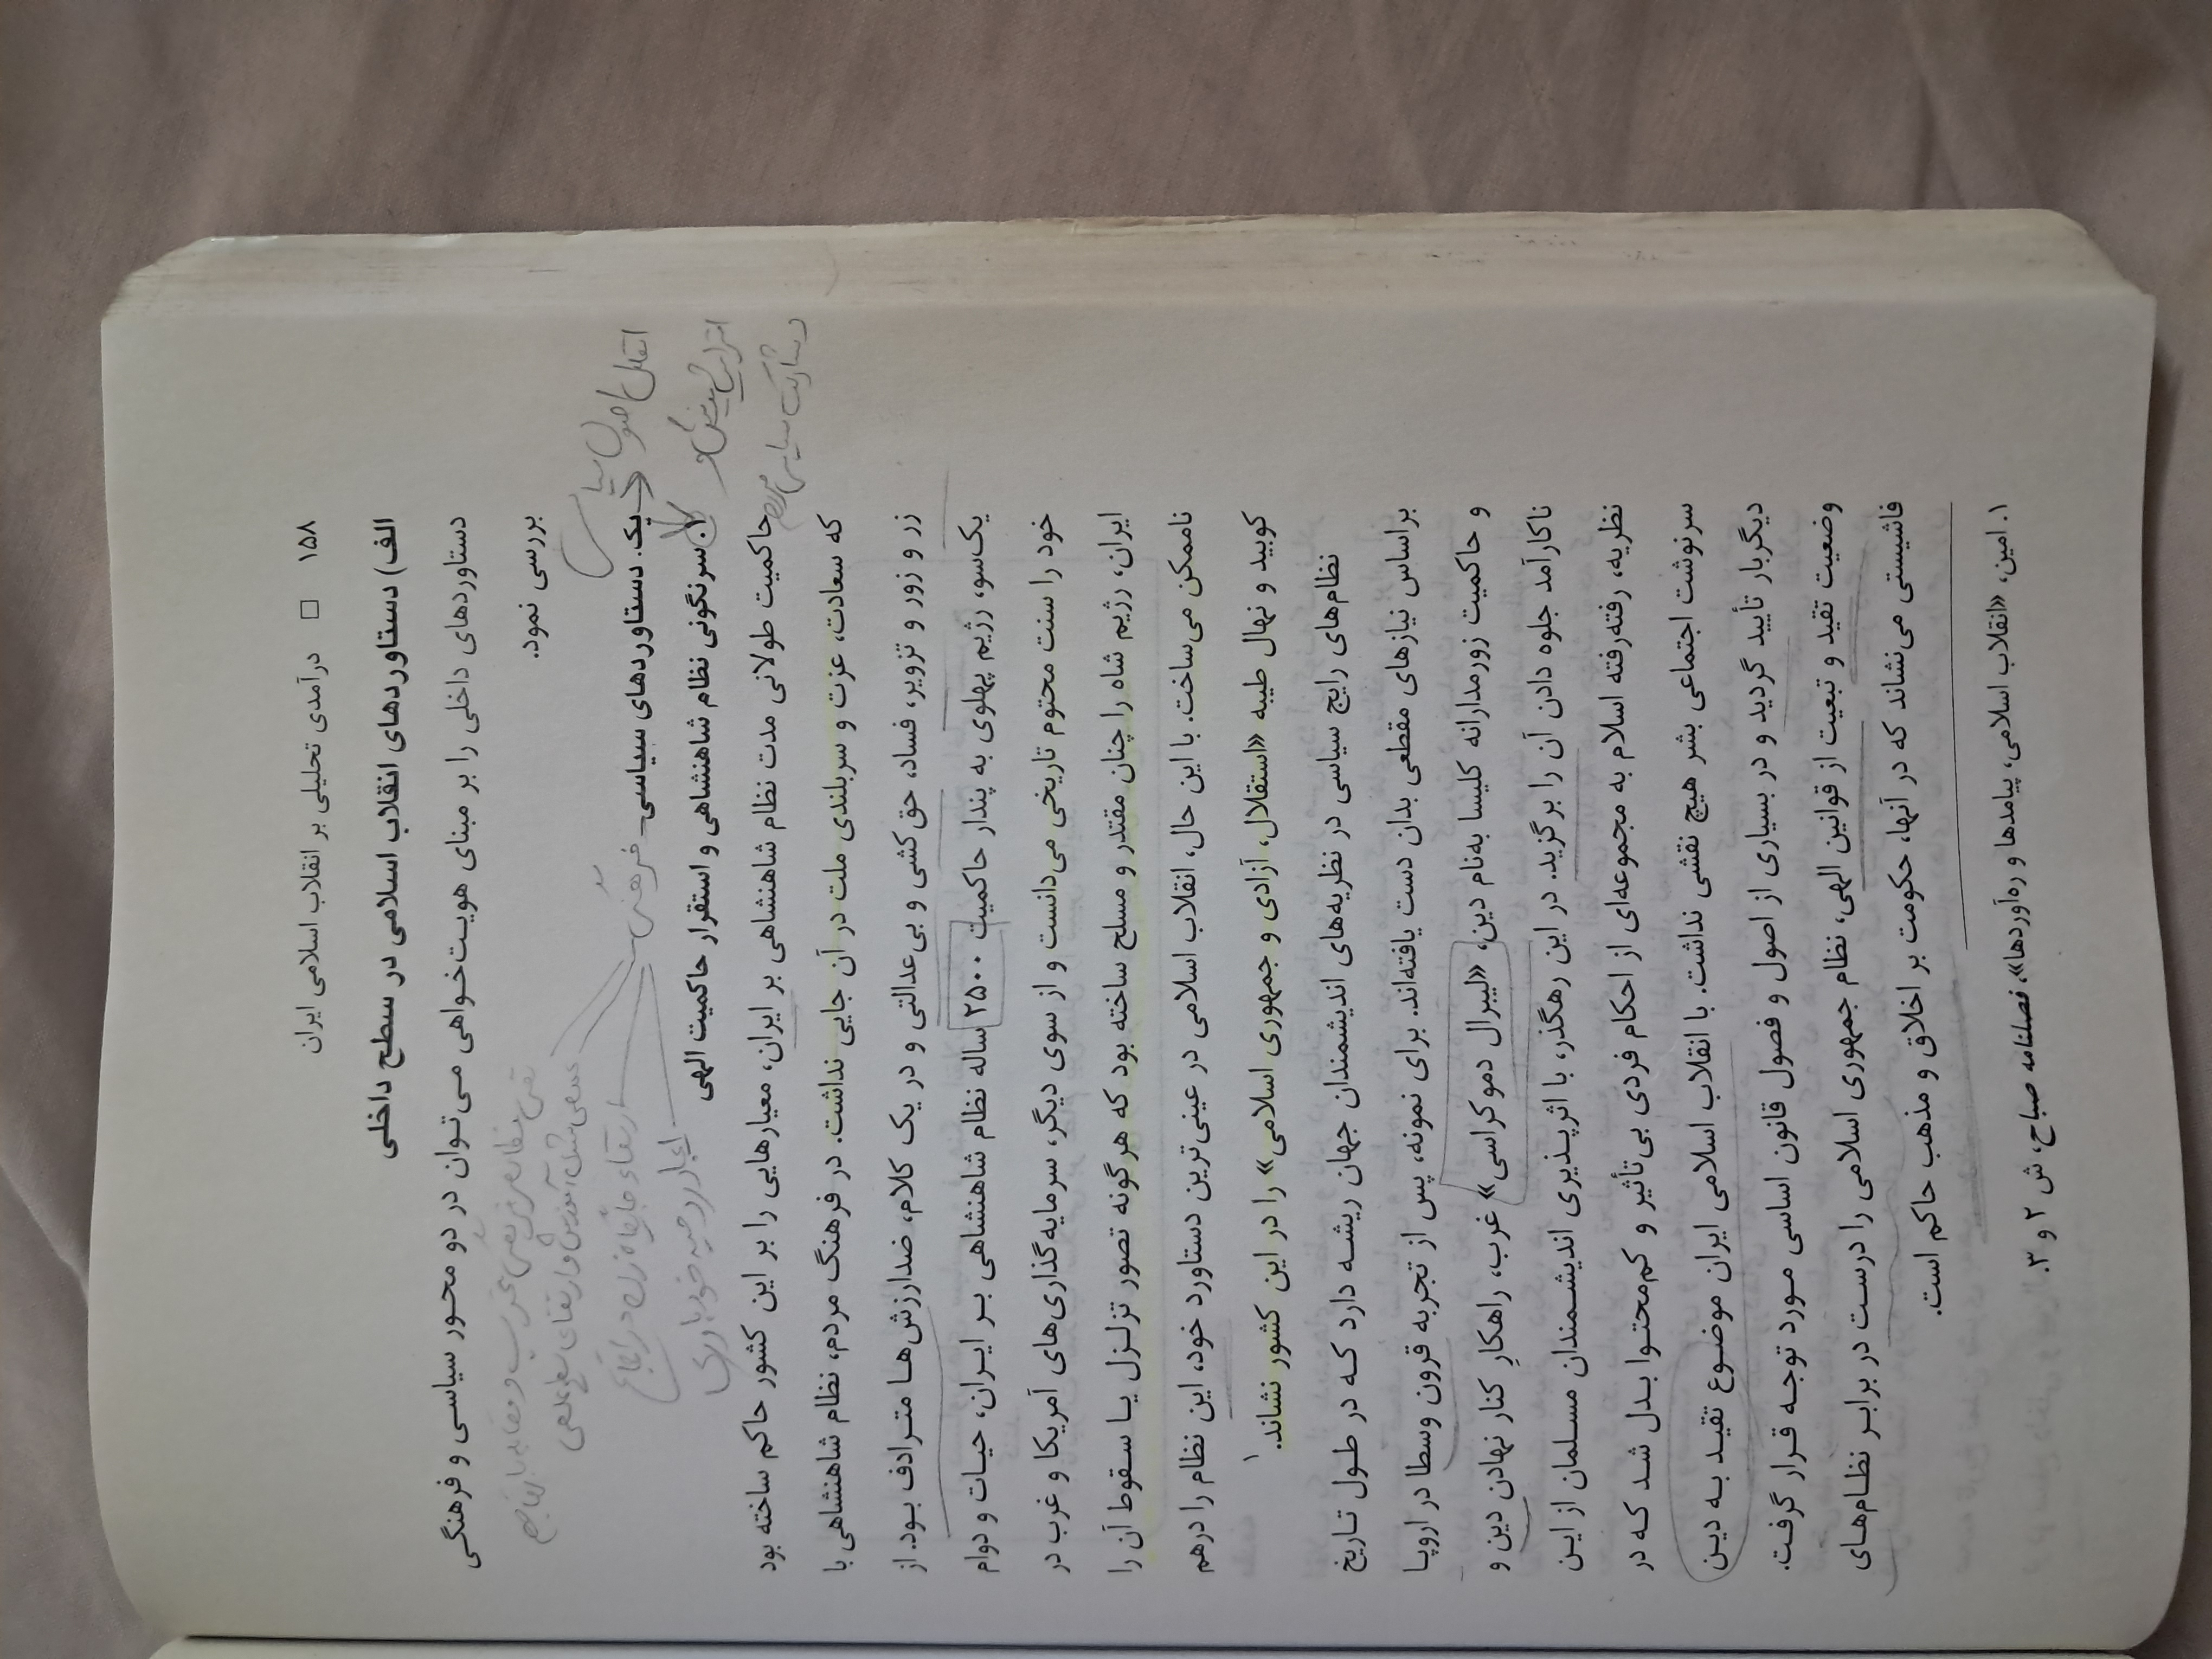 ۱۵۸ □ درآمدی تحلیلی بر انقلاب اسلامی ایران
الف) دستاوردهای انقلاب اسلامی در سطح داخلی
دستاوردهای داخلی را بر مبنای هویت‌خواهی می‌توان در دو محور سیاسی و فرهنگی
بررسی نمود.
عمومی شدن آموزش و ارتقای سطح علمی
ارتقاء جایگاه زن در اجتماع
ایجاد روحیه خودباوری
فرهنگی
یک. دستاوردهای سیاسی
اصول سیاسی
افزایش بینش و
مشارکت سیاسی مردم
۱. سرنگونی نظام شاهنشاهی و استقرار حاکمیت الهی
حاکمیت طولانی مدت نظام شاهنشاهی بر ایران، معیارهایی را بر این کشور حاکم ساخته بود
که سعادت، عزت و سربلندی ملت در آن جایی نداشت. در فرهنگ مردم، نظام شاهنشاهی با
زر و زور و تزویر، فساد، حق‌کشی و بی‌عدالتی و در یک کلام، ضدارزش‌ها مترادف بود. از
یک‌سو، رژیم پهلوی به پندار حاکمیت ۲۵۰۰ ساله نظام شاهنشاهی بر ایران، حیات و دوام
خود را سنت محتوم تاریخی می‌دانست و از سوی دیگر، سرمایه‌گذاری‌های آمریکا و غرب در
ایران، رژیم شاه را چنان مقتدر و مسلح ساخته بود که هرگونه تصور تزلزل یا سقوط آن را
ناممکن می‌ساخت. با این حال، انقلاب اسلامی در عینی‌ترین دستاورد خود، این نظام را درهم
کوبید و نهال طیبه «استقلال، آزادی و جمهوری اسلامی» را در این کشور نشاند.۱
نظام‌های رایج سیاسی در نظریه‌های اندیشمندان جهان ریشه دارد که در طول تاریخ
براساس نیازهای مقطعی بدان دست یافته‌اند. برای نمونه، پس از تجربه قرون وسطا در اروپا
و حاکمیت زورمدارانه کلیسا به‌نام دین، «لیبرال دموکراسی» غرب، راهکارِ کنار نهادن دین و
ناکارآمد جلوه دادن آن را برگزید. در این رهگذر، با اثرپذیری اندیشمندان مسلمان از این
نظریه، رفته‌رفته اسلام به مجموعه‌ای از احکام فردی بی‌تأثیر و کم‌محتوا بدل شد که در
سرنوشت اجتماعی بشر هیچ نقشی نداشت. با انقلاب اسلامی ایران موضوع تقید به دین
دیگربار تأیید گردید و در بسیاری از اصول و فصول قانون اساسی مورد توجه قرار گرفت.
وضعیت تقید و تبعیت از قوانین الهی، نظام جمهوری اسلامی را درست در برابر نظام‌های
فاشیستی می‌نشاند که در آنها، حکومت بر اخلاق و مذهب حاکم است.
۱. امین، «انقلاب اسلامی، پیامدها و ره‌آوردها»، فصلنامه صباح، ش ۲ و ۳.